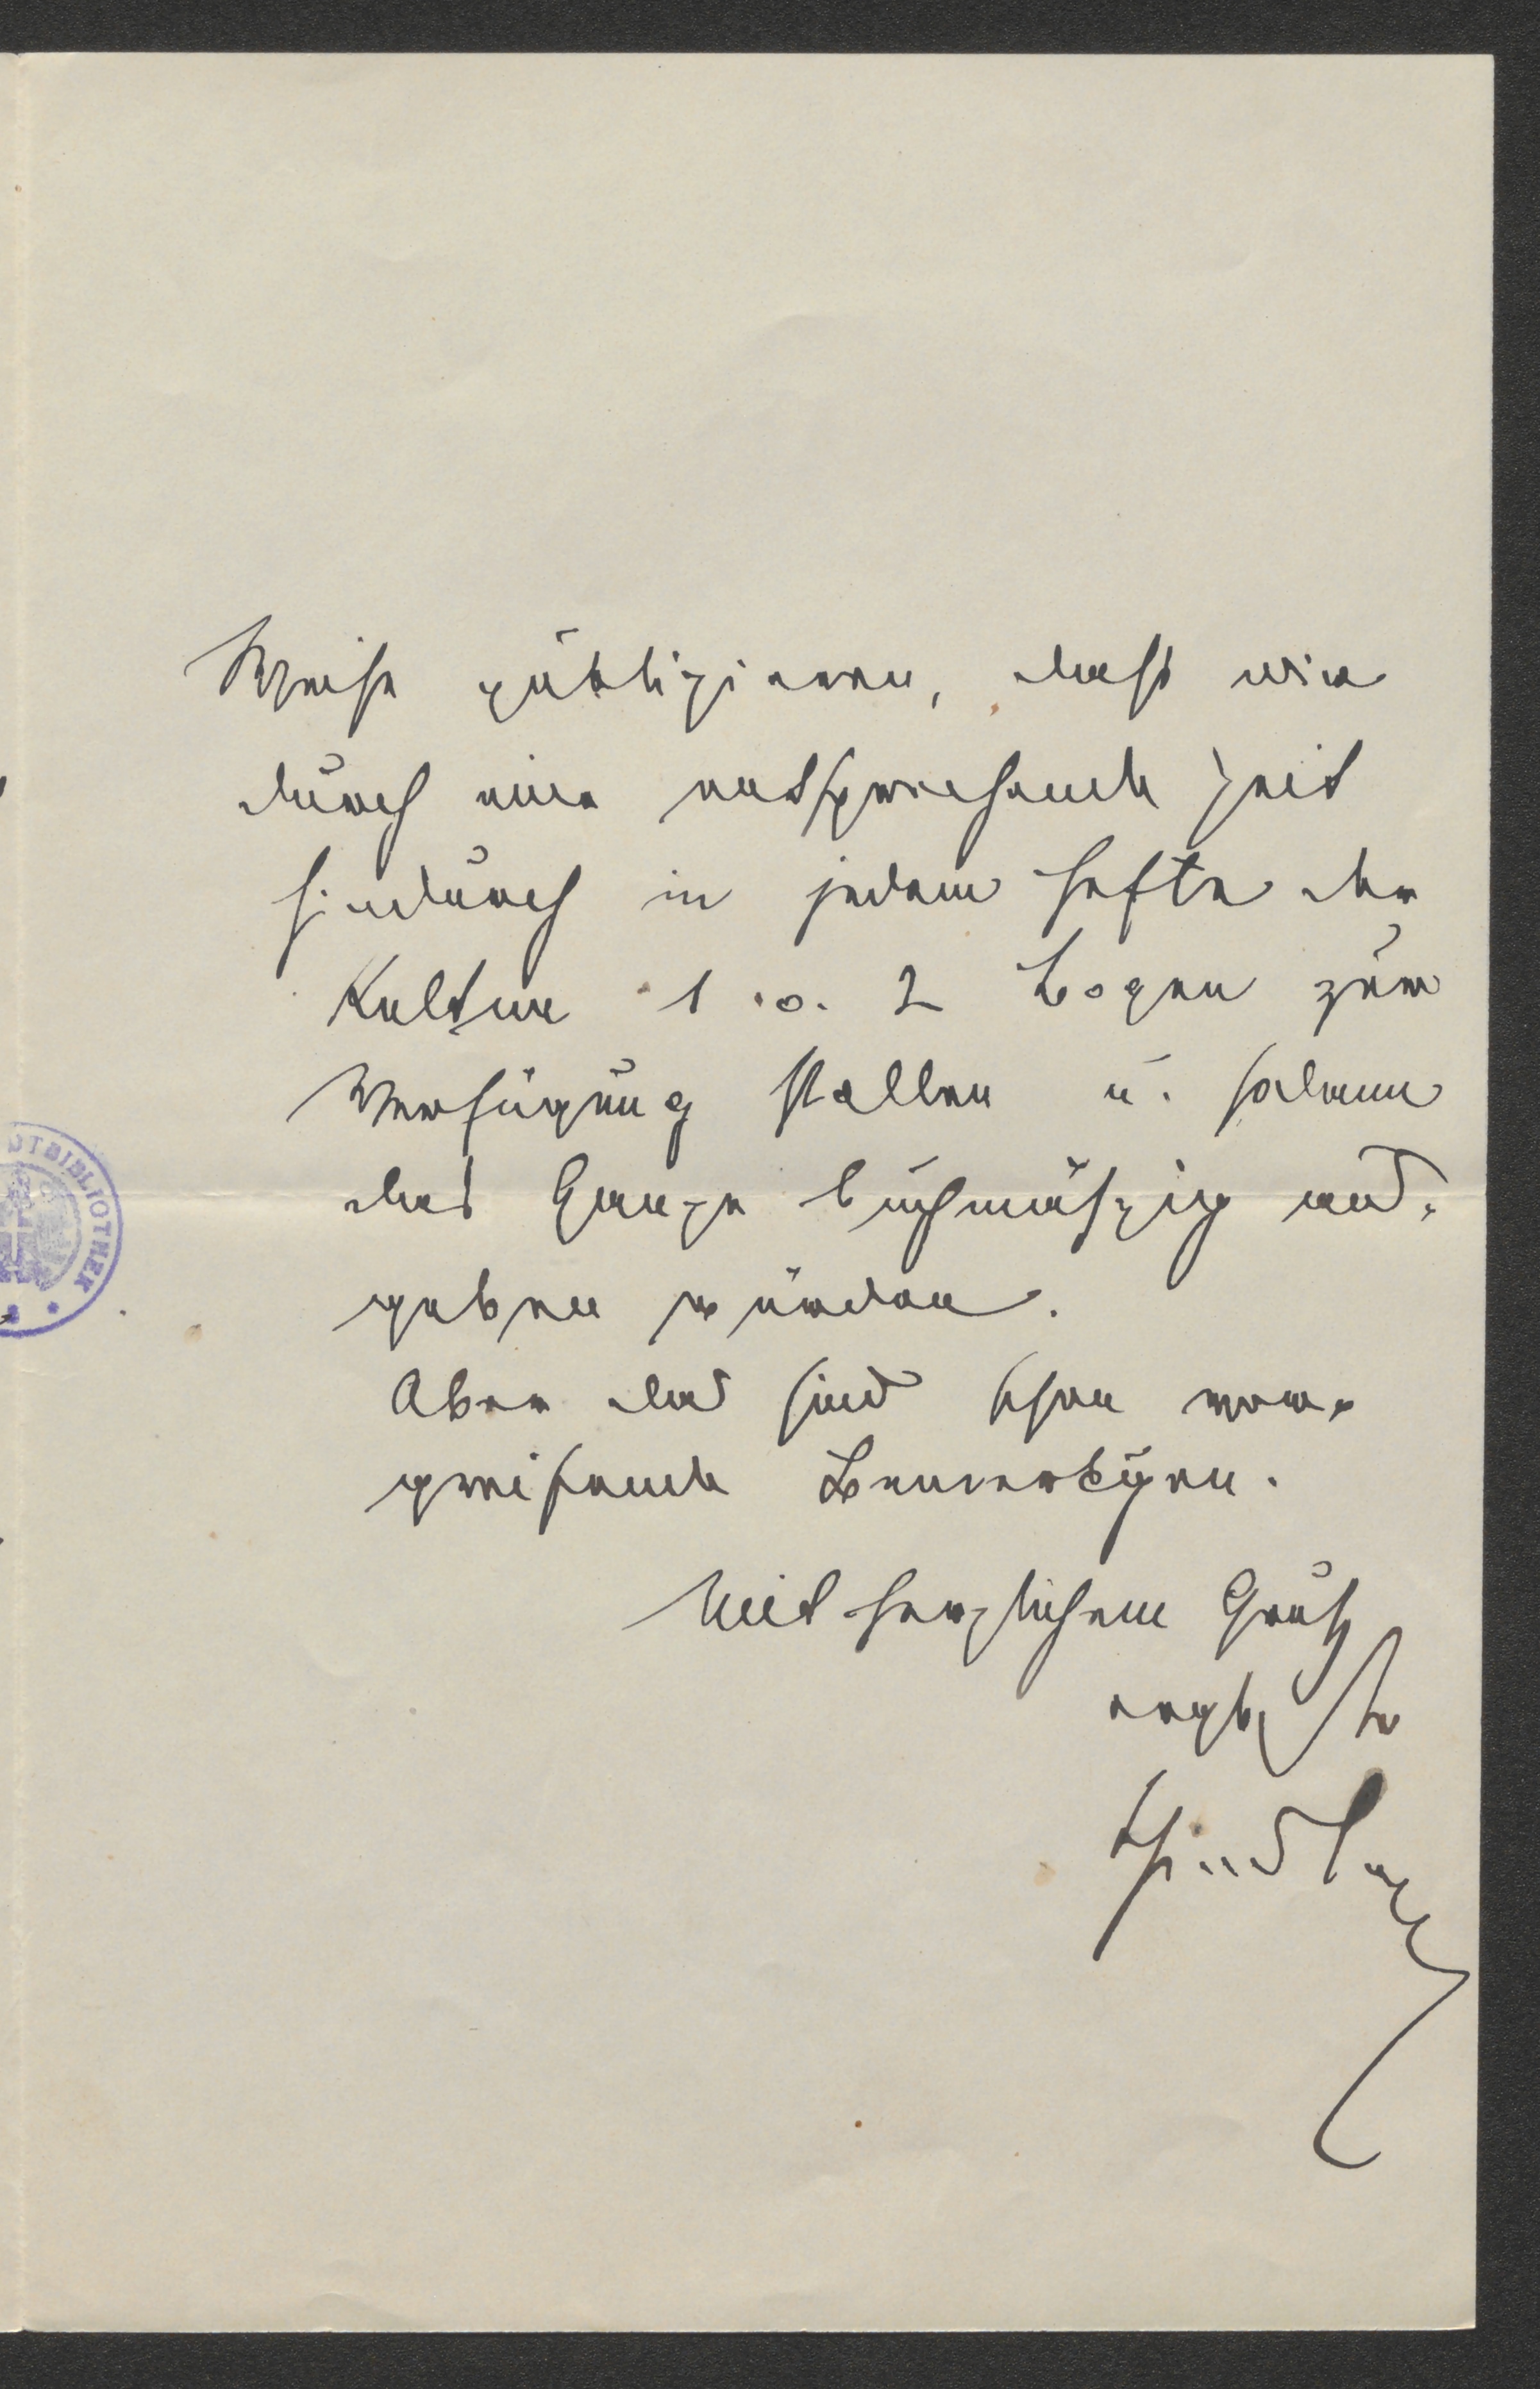 Weise publizieren, dass wir
durch eine entsprechende Zeit
hindurch in jedem Hefte der
Kultur 1 o. 2 Bogen zur
Verfügung stellen u. sodann
das Ganze buchmäszig aus-
geben würden.
Aber das sind schon vor-
greifende
Mit herzlichem Grusz
ergbst Ihr
TBIBLIOTHEK